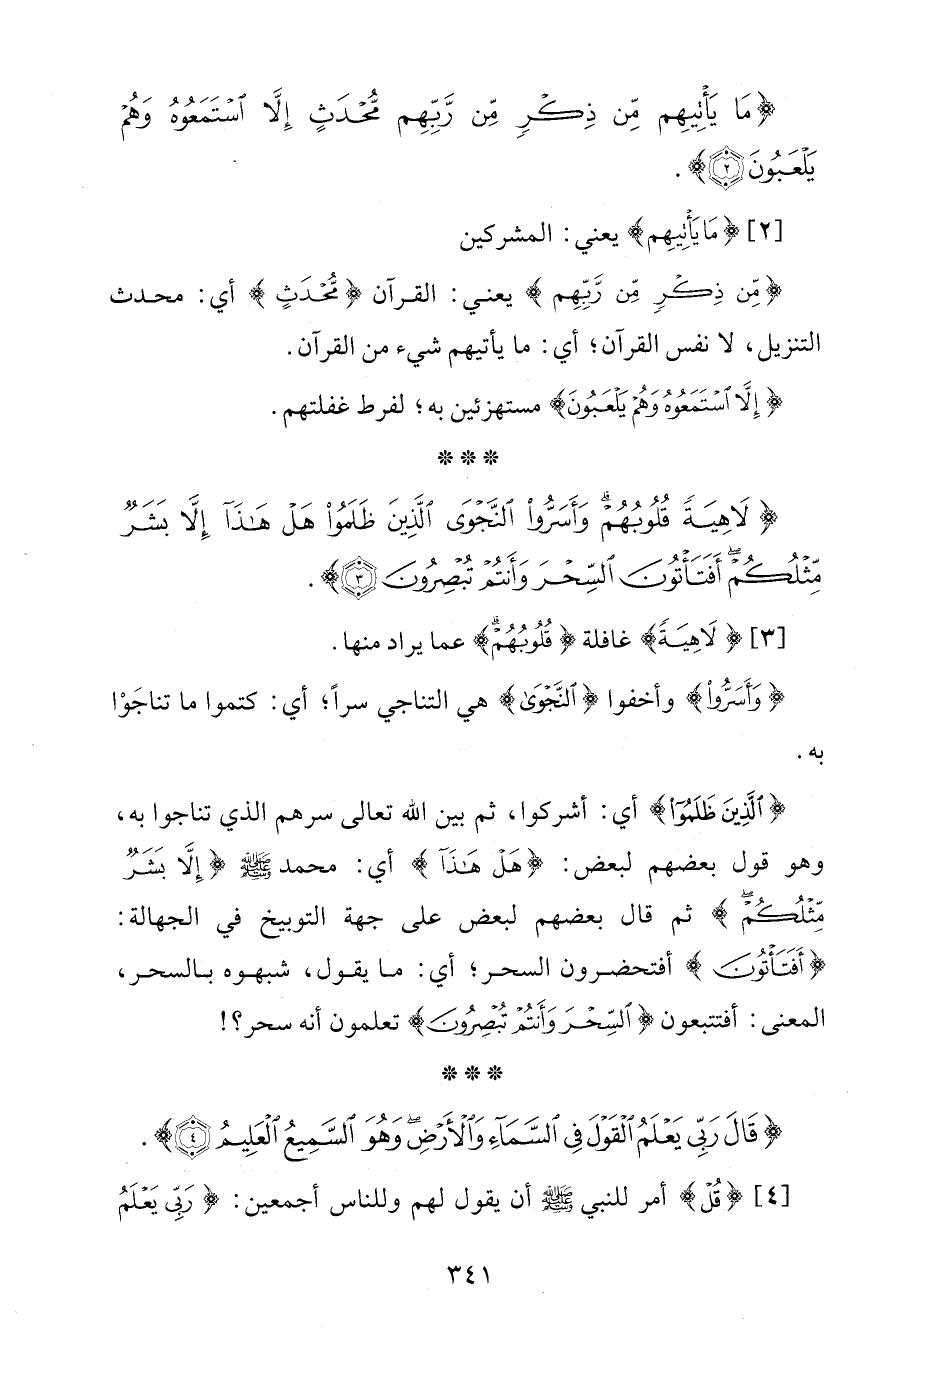 ﴿مَا يَأْتِيهِم مِّن ذِكْرٍ مِّن رَّبِّهِم مُّحْدَثٍ إِلَّا ٱسْتَمَعُوهُ وَهُمْ
يَلْعَبُونَ ۝٢﴾ .
[٢] ﴿مَا يَأْتِيهِم﴾ يعني: المشركين
﴿مِّن ذِكْرٍ مِّن رَّبِّهِم﴾ يعني: القرآن ﴿مُّحْدَثٍ﴾ أي: محدث
التنزيل، لا نفس القرآن؛ أي: ما يأتيهم شيء من القرآن.
﴿إِلَّا ٱسْتَمَعُوهُ وَهُمْ يَلْعَبُونَ﴾ مستهزئين به؛ لفرط غفلتهم.
* * *
﴿لَاهِيَةً قُلُوبُهُمْ ۗ وَأَسَرُّوا۟ ٱلنَّجْوَى ٱلَّذِينَ ظَلَمُوا۟ هَلْ هَٰذَآ إِلَّا بَشَرٌ
مِّثْلُكُمْ ۖ أَفَتَأْتُونَ ٱلسِّحْرَ وَأَنتُمْ تُبْصِرُونَ ۝٣﴾ .
[٣] ﴿لَاهِيَةً﴾ غافلة ﴿قُلُوبُهُمْ ۗ﴾ عما يراد منها.
﴿وَأَسَرُّوا۟﴾ وأخفوا ﴿ٱلنَّجْوَىٰ﴾ هي التناجي سراً؛ أي: كتموا ما تناجَوْا
به .
﴿ٱلَّذِينَ ظَلَمُوٓا۟﴾ أي: أشركوا، ثم بين الله تعالى سرهم الذي تناجوا به،
وهو قول بعضهم لبعض: ﴿هَلْ هَٰذَآ﴾ أي: محمد ﷺ ﴿إِلَّا بَشَرٌ
مِّثْلُكُمْ ۖ﴾ ثم قال بعضهم لبعض على جهة التوبيخ في الجهالة:
﴿أَفَتَأْتُونَ﴾ أفتحضرون السحر؛ أي: ما يقول، شبهوه بالسحر،
المعنى: أفتتبعون ﴿ٱلسِّحْرَ وَأَنتُمْ تُبْصِرُونَ﴾ تعلمون أنه سحر؟!
* * *
﴿قَالَ رَبِّى يَعْلَمُ ٱلْقَوْلَ فِى ٱلسَّمَآءِ وَٱلْأَرْضِ ۖ وَهُوَ ٱلسَّمِيعُ ٱلْعَلِيمُ ۝٤﴾ .
[٤] ﴿قُلْ﴾ أمر للنبي ﷺ أن يقول لهم وللناس أجمعين: ﴿رَبِّى يَعْلَمُ
٣٤١